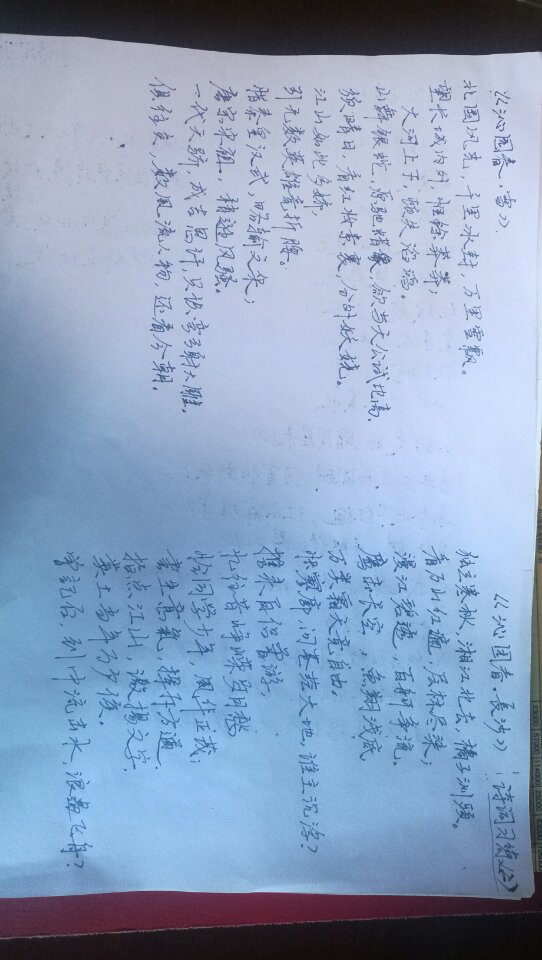 《沁园春·雪》
北国风光，千里冰封，万里雪飘。
望长城内外，惟余莽莽；
大河上下，顿失滔滔。
山舞银蛇，原驰蜡象，欲与天公试比高。
须晴日，看红妆素裹，分外妖娆。
江山如此多娇，
引无数英雄竞折腰。
惜秦皇汉武，略输文采；
唐宗宋祖，稍逊风骚。
一代天骄，成吉思汗，只识弯弓射大雕。
俱往矣，数风流人物，还看今朝。
《沁园春·长沙》（诗词习
独立寒秋，湘江北去，橘子洲头。
看万山红遍，层林尽染；
漫江碧透，百舸争流。
鹰击长空，鱼翔浅底
万类霜天竞自由。
怅寥廓，问苍茫大地，谁主沉浮？
携来百侣曾游，
忆往昔峥嵘岁月稠
恰同学少年，风华正茂；
书生意气，挥斥方遒
指点江山，激扬文字
粪土当年万户侯。
曾记否，到中流击水，浪遏飞舟？